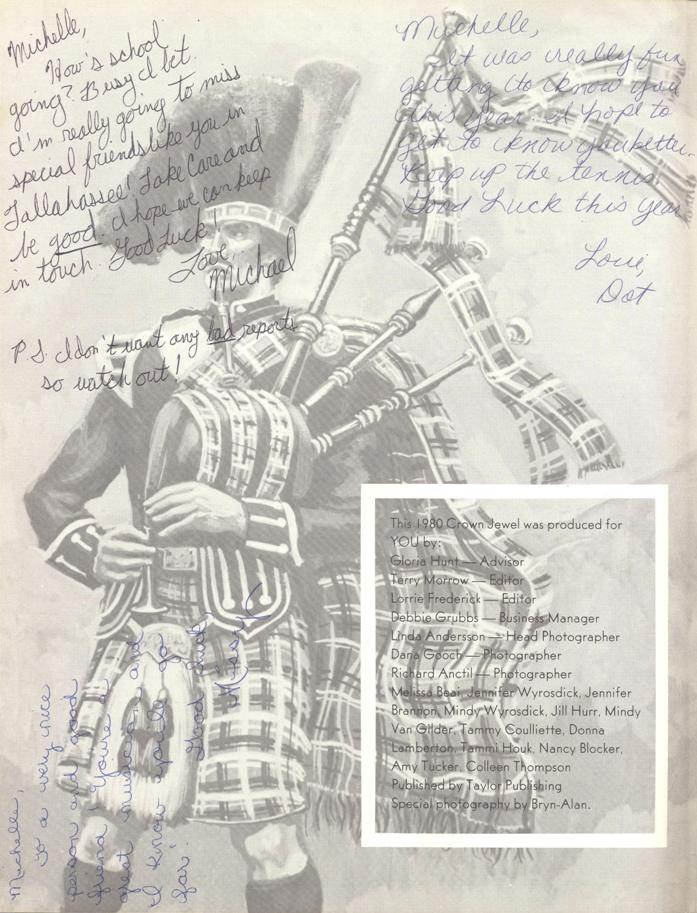 Michelle,
How's school
going? Busy I bet.
I'm really going to miss
special friends like you in
Tallahassee! Take Care and
be good. I hope we can keep
in touch. Good Luck!
Love,
Michael
P.S. I don't want any bad reports
so watch out!
Michelle,
It was really fun
getting to know you
this year. I hope to
get to know you better.
Keep up the tennis!
Good Luck this year
Love,
Dot
Michelle,
To a very nice
person and good
friend. You're a
great musician, and
I know you'll go
far!
Good Luck,
Missy
This 1980 Crown Jewel was produced for
YOU by:
Gloria Hunt — Advisor
Terry Morrow — Editor
Lorrie Frederick — Editor
Debbie Grubbs — Business Manager
Linda Andersson — Head Photographer
Dana Gooch — Photographer
Richard Anctil — Photographer
Melissa Beai, Jennifer Wyrosdick, Jennifer
Brannon, Mindy Wyrosdick, Jill Hurr, Mindy
Van Gilder, Tammy Coulliette, Donna
Lamberton, Tammi Houk, Nancy Blocker,
Amy Tucker, Colleen Thompson
Published by Taylor Publishing
Special photography by Bryn-Alan.